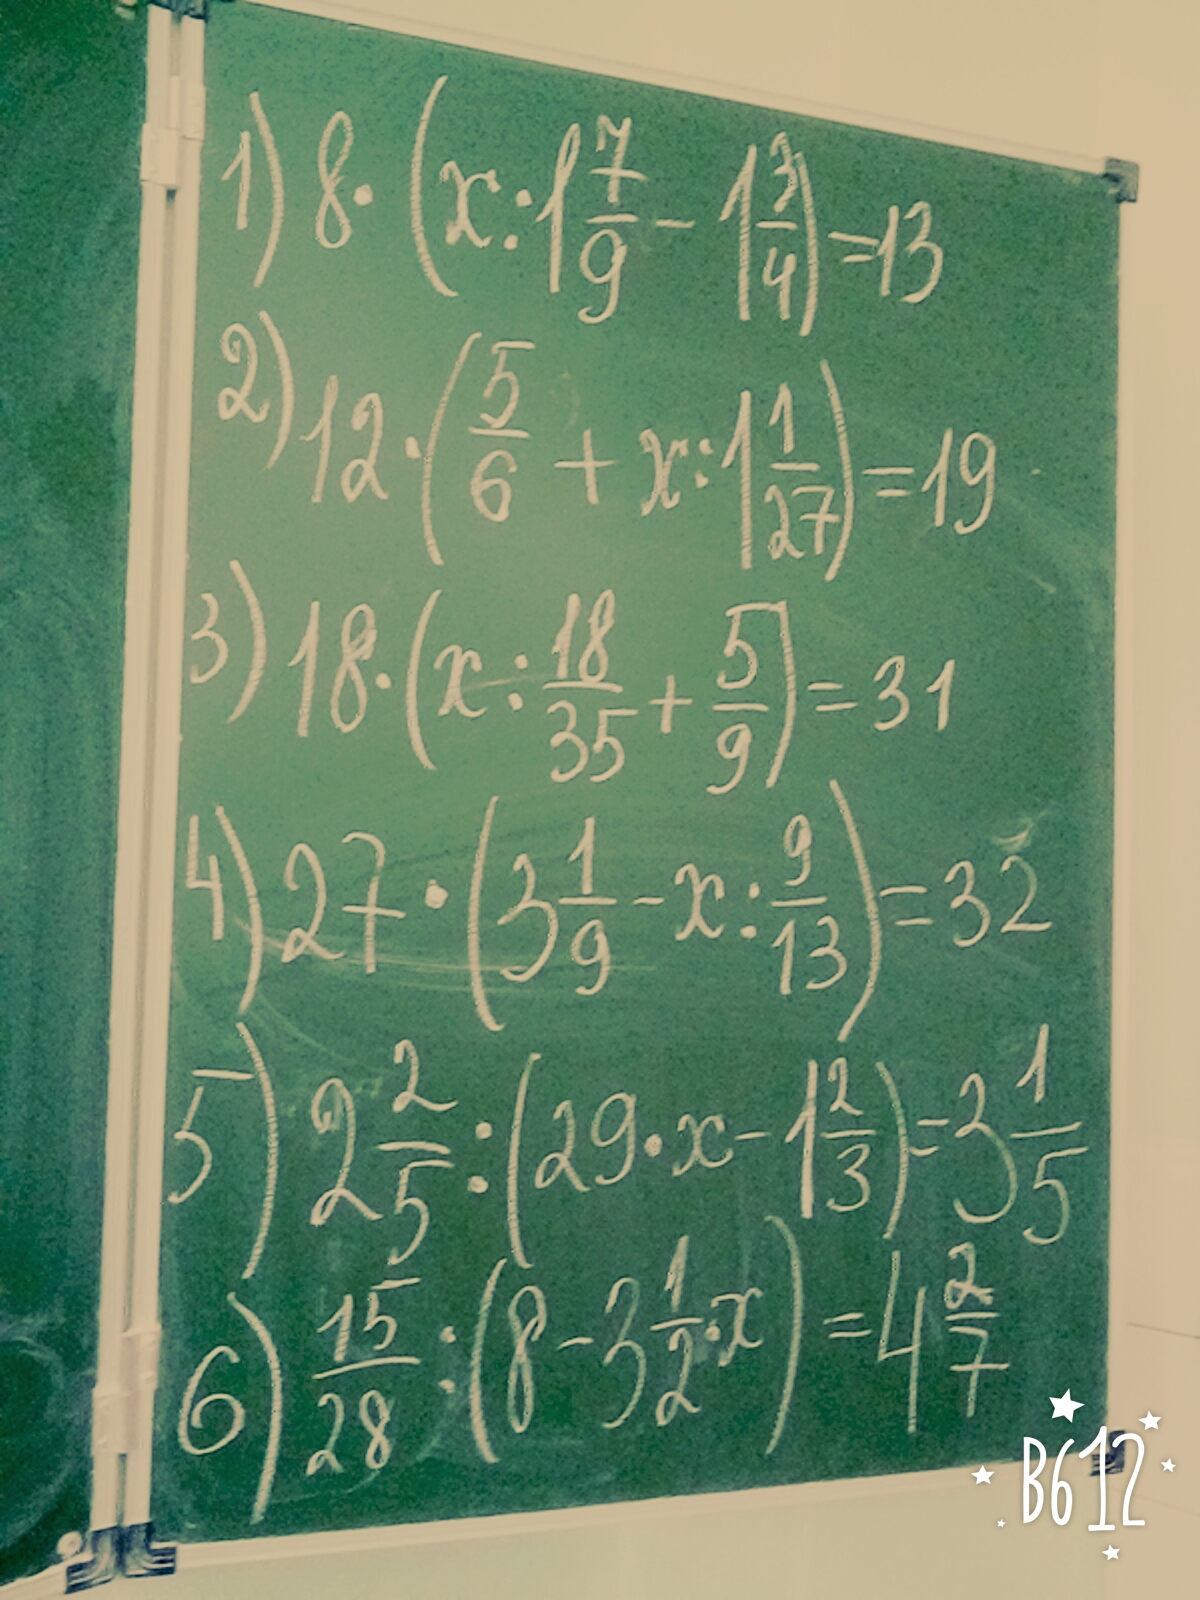 1) 8·(x:1 7/9 - 1 3/4) = 13
2) 12·(5/6 + x:1 1/27) = 19
3) 18·(x:18/35 + 5/9) = 31
4) 27·(3 1/9 - x:9/13) = 32
5) 2 2/5:(29·x - 1 2/3) = 3 1/5
6) 15/28:(8 - 3 1/2·x) = 4 2/7
B612